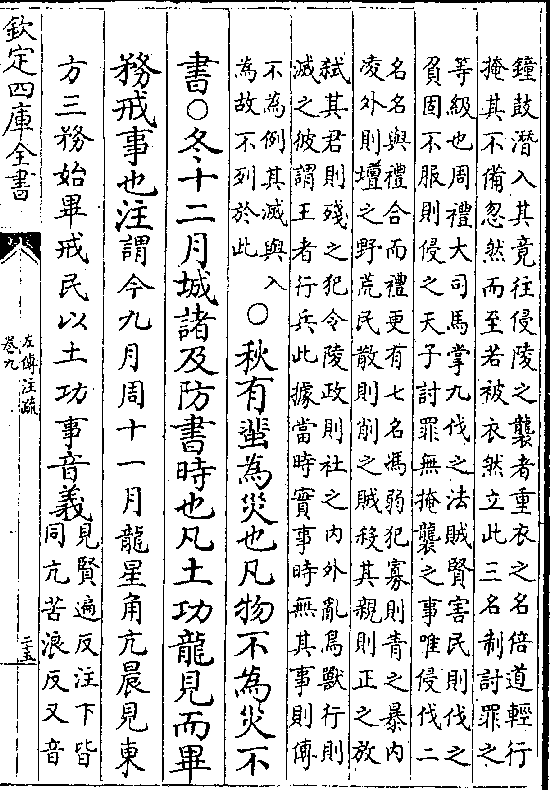 鐘鼓潛入其竟往侵陵之襲者重衣之名倍道輕行
掩其不備忽然而至若被衣然立此三名制討罪之
等級也周禮大司馬掌九伐之法賊賢害民則伐之
負固不服則侵之天子討罪無掩襲之事唯侵伐二
名名與禮合而禮更有七名馮弱犯寡則青之暴内
凌外則壇之野荒民散則削之賊殺其親則正之放
弑其君則殘之犯令陵政則社之内外亂鳥獸行則
滅之彼謂王者行兵此據當時實事時無其事則傳
不為例其滅與入
為故不列於此
○秋有蜚為災也凡物不為災不
書○冬十二月城諸及防書時也凡土功龍見而畢
務戒事也注謂今九月周十一月龍星角亢晨見東
方三務始畢戒民以土功事音義
見賢遍反注下皆
同亢苦浪反又音
欽定四庫全書
左傳注疏
卷九
二五